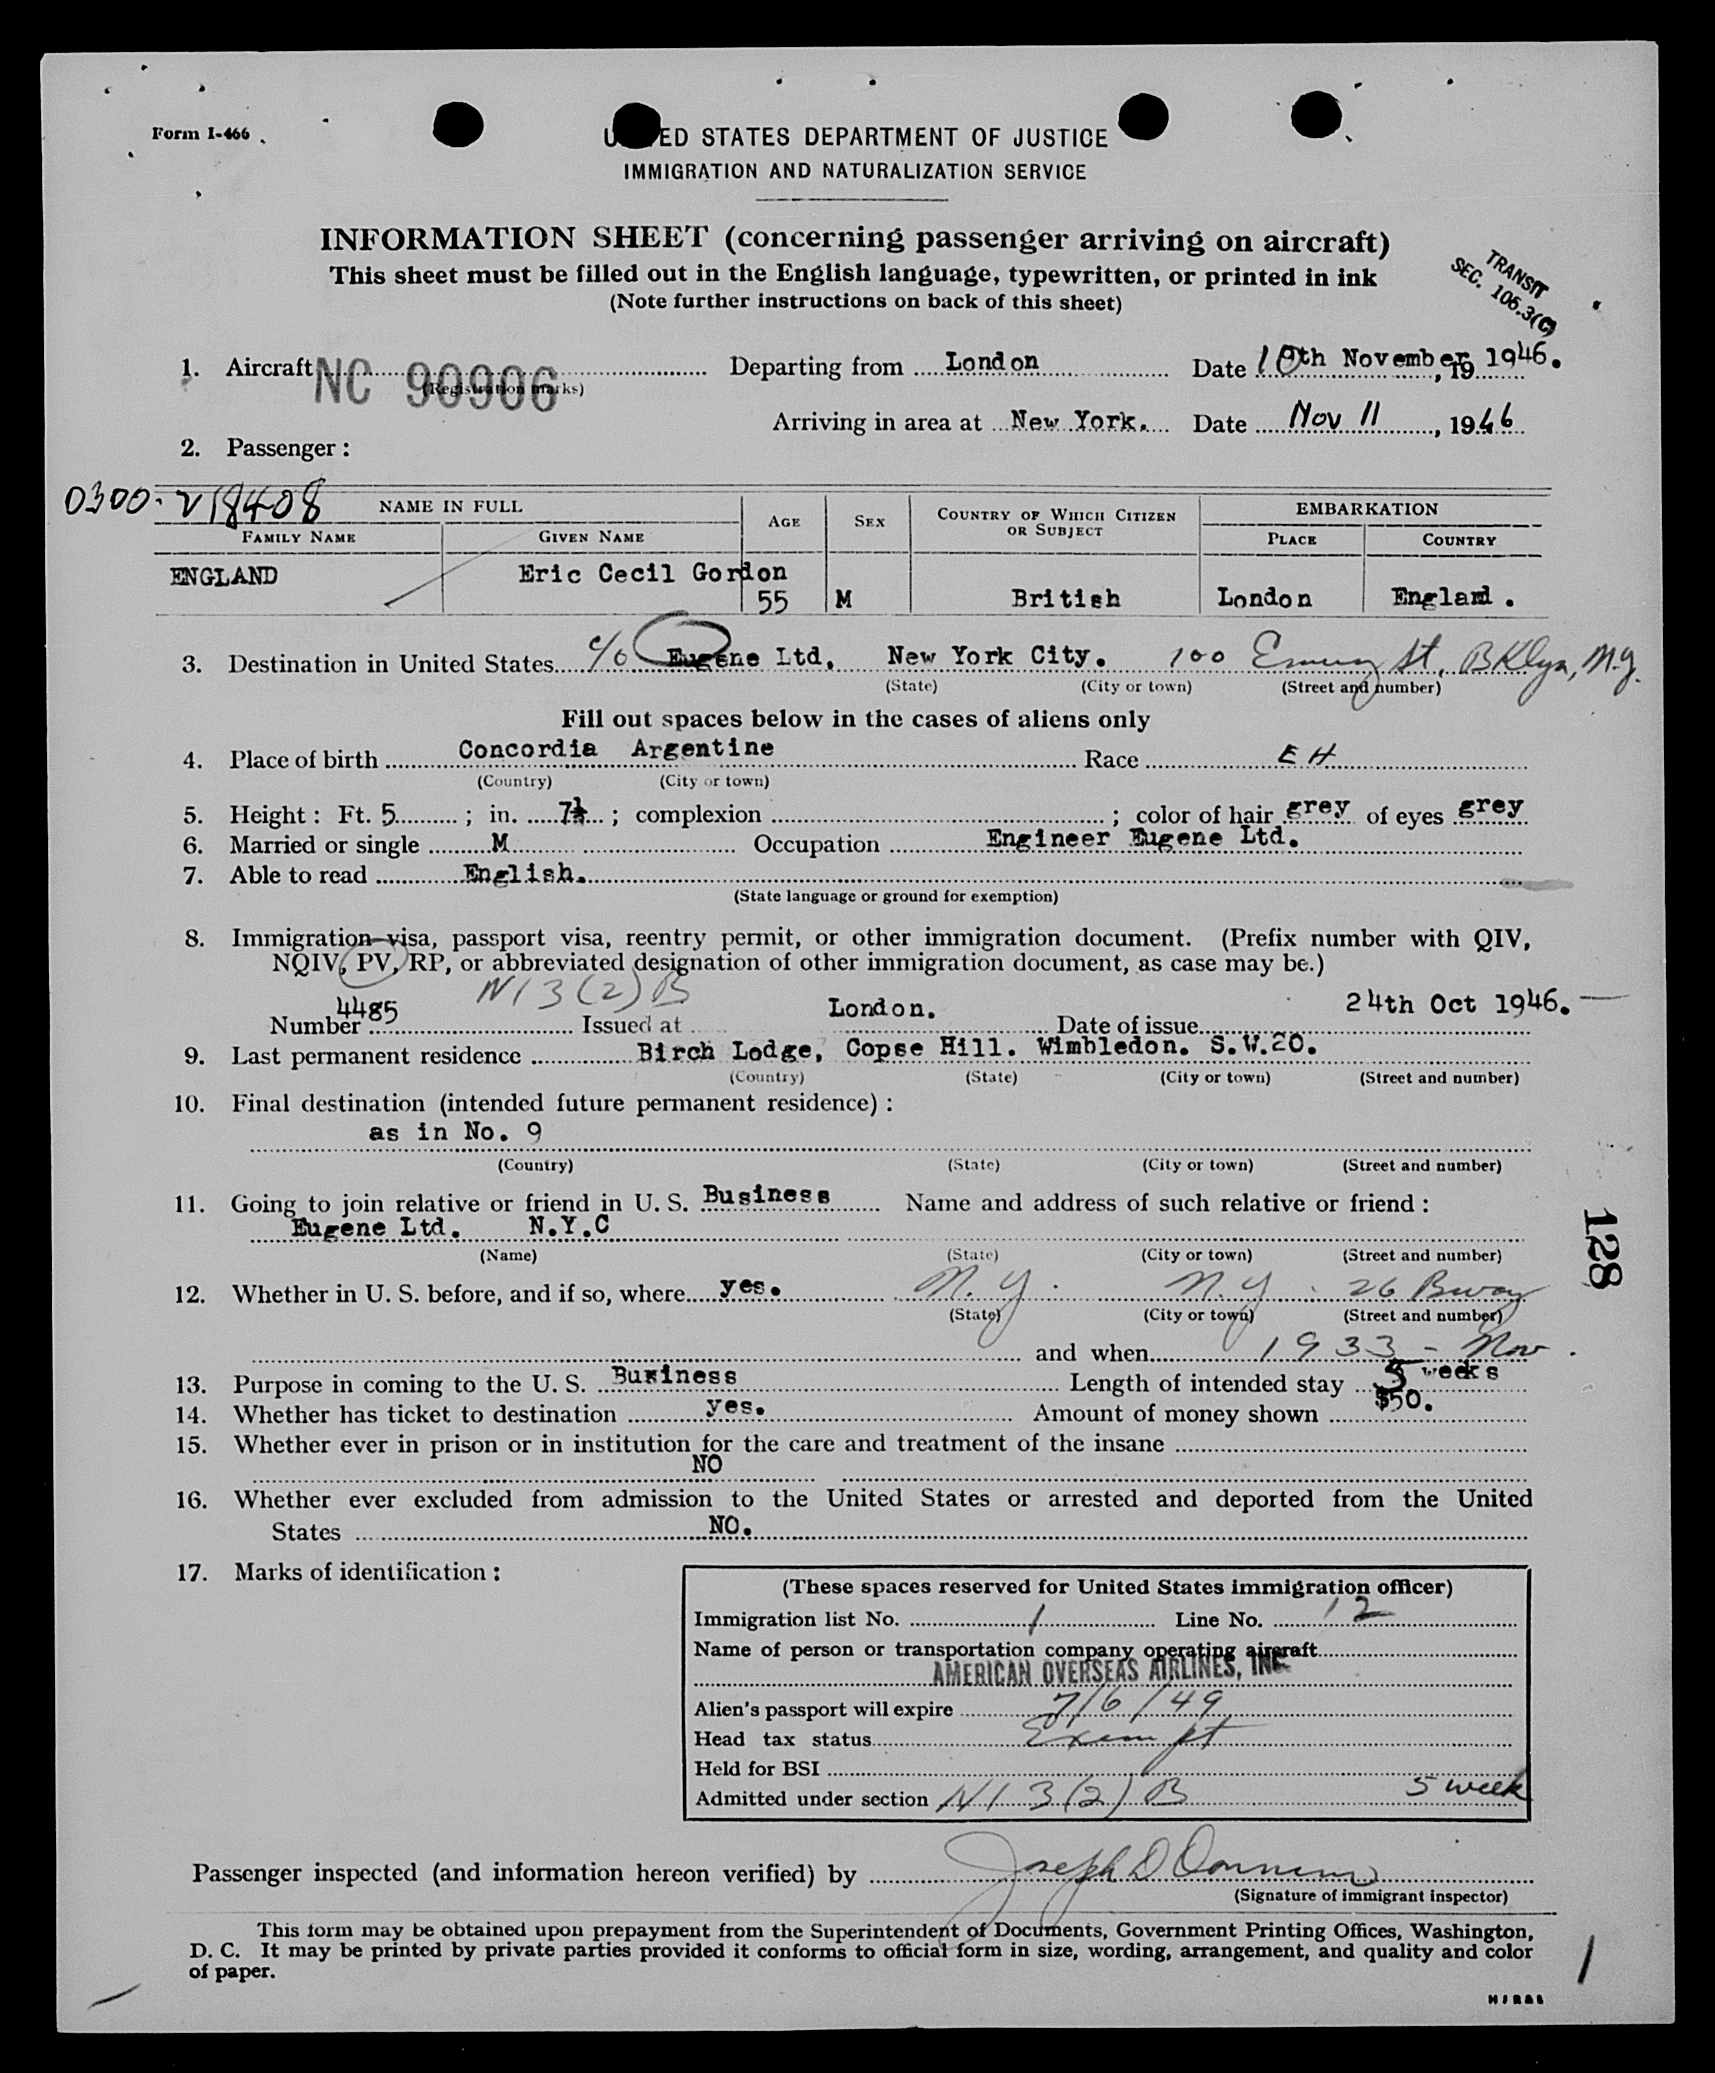 Form I-466
UNITED STATES DEPARTMENT OF JUSTICE
IMMIGRATION AND NATURALIZATION SERVICE
INFORMATION SHEET (concerning passenger arriving on aircraft)
This sheet must be filled out in the English language, typewritten, or printed in ink
(Note further instructions on back of this sheet)
TRANSIT
SEC. 106.3(C)
1. Aircraft NC 90906 Departing from London Date 10th November, 19 1946.
(Registration marks)
Arriving in area at New York. Date Nov 11, 1946
2. Passenger:
0300-V18408 NAME IN FULL AGE SEX COUNTRY OF WHICH CITIZEN OR SUBJECT EMBARKATION
FAMILY NAME GIVEN NAME PLACE COUNTRY
ENGLAND Eric Cecil Gordon
55 M British London England.
3. Destination in United States c/o Eugene Ltd. New York City. 100 St, BKlyn, N.Y.
(State) (City or town) (Street and number)
Fill out spaces below in the cases of aliens only
4. Place of birth Concordia Argentine Race EH
(Country) (City or town)
5. Height: Ft. 5; in. 7½; complexion ; color of hair grey of eyes grey
6. Married or single M Occupation Engineer Eugene Ltd.
7. Able to read English.
(State language or ground for exemption)
8. Immigration visa, passport visa, reentry permit, or other immigration document. (Prefix number with QIV,
NQIV, PV, RP, or abbreviated designation of other immigration document, as case may be.)
N13(2)B
Number 4485 Issued at London. Date of issue 24th Oct 1946.
9. Last permanent residence Birch Lodge, Copse Hill. Wimbledon. S.W.20.
(Country) (State) (City or town) (Street and number)
10. Final destination (intended future permanent residence):
as in No. 9
(Country) (State) (City or town) (Street and number)
11. Going to join relative or friend in U. S. Business Name and address of such relative or friend:
Eugene Ltd. N.Y.C
(Name) (State) (City or town) (Street and number)
128
12. Whether in U. S. before, and if so, where yes. N.Y. N.Y. 26 Bway
(State) (City or town) (Street and number)
and when 1933 - Nov.
13. Purpose in coming to the U. S. Business Length of intended stay 5 weeks
14. Whether has ticket to destination yes. Amount of money shown $50.
15. Whether ever in prison or in institution for the care and treatment of the insane
NO
16. Whether ever excluded from admission to the United States or arrested and deported from the United
States NO.
17. Marks of identification:
(These spaces reserved for United States immigration officer)
Immigration list No. 1 Line No. 12
Name of person or transportation company operating aircraft
AMERICAN OVERSEAS AIRLINES, INC.
Alien's passport will expire 7/6/49
Head tax status Exempt
Held for BSI
Admitted under section N13(2)B 5 week
Passenger inspected (and information hereon verified) by Joseph D
(Signature of immigrant inspector)
This form may be obtained upon prepayment from the Superintendent of Documents, Government Printing Offices, Washington,
D. C. It may be printed by private parties provided it conforms to official form in size, wording, arrangement, and quality and color
of paper.